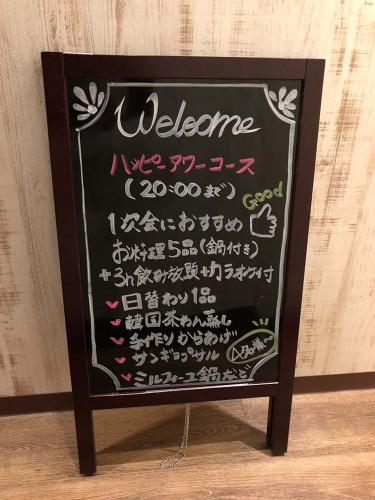 Welcome
ハッピーアワーコース
(20:00まで)
Good
1次会におすすめ
お料理5品(鍋付き)
+3h飲み放題+カラオケ付
日替わり1品
韓国茶わん蒸し
手作りからあげ
サンギョプサル
ミルフィーユ鍋など